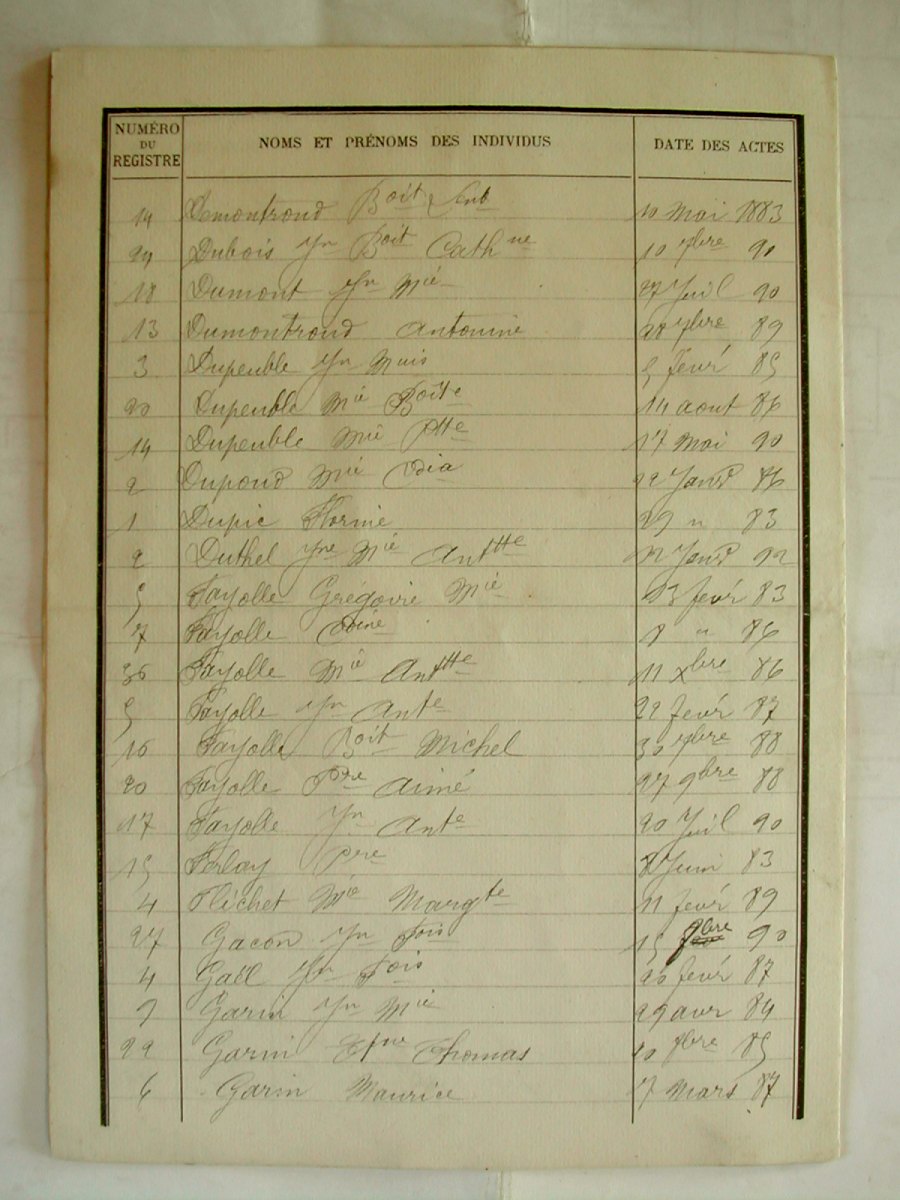 NUMÉRO DU REGISTRE NOMS ET PRÉNOMS DES INDIVIDUS DATE DES ACTES
14 Demontrond Boit 10 Mai 1883
24 Dubois Jn Boit Cathne 10 7bre 90
18 Dumont Jn Mie 27 Juil 90
13 Dumontrond Antonine 28 7bre 89
3 Dupeuble Jn 5 fevr 85
20 Dupeuble Mie Boite 14 aout 86
14 Dupeuble Mie Ptte 17 Mai 90
2 Dupond Mie Dia 22 Janr 86
1 Dupic Florine 29 " 83
2 Duthel Jne Mie Anttte 22 Janr 92
5 Fayolle Grégoire Mie 13 fevr 83
7 Fayolle 8 " 86
36 Fayolle Mie Anttte 11 xbre 86
5 Fayolle Jn Ante 22 fevr 87
16 Fayolle Boit Michel 30 7bre 88
20 Fayolle Pre Aimé 27 9bre 88
17 Fayolle Jn Ante 20 Juil 90
15 Ferlay Pre 8 Juin 83
4 Flichet Mie Margte 11 fevr 89
27 Gacon Jn Fois 15 9bre 90
4 Gaël Jn Fois 26 fevr 87
9 Garin Jn Mie 29 avr 84
22 Garin Etne Thomas 20 8bre 85
6 Garin Maurice 17 Mars 87